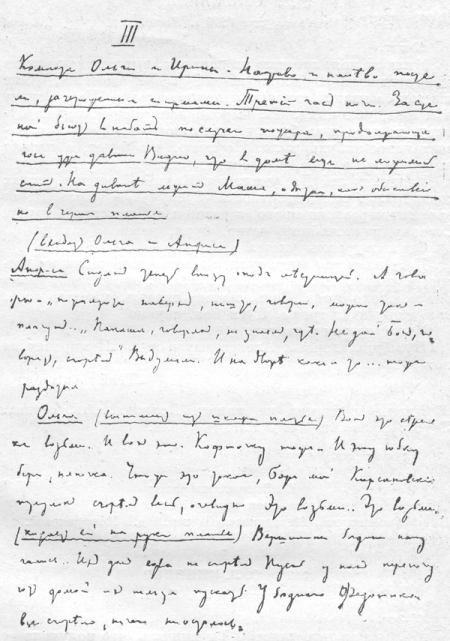 III
Комната Ольги и Ирины. Направо и налѣво посте-
ли, загороженныя ширмами. Третій часъ ночи. За сце-
ной бьют в набат по случаю пожара, продолжающа-
гося уже давно. Видно, что в домѣ еще не ложились
спать. На диванѣ лежит Маша, одѣтая, как обыкновен-
но в черное платье
(входят Ольга и Анфиса)
Анфиса Сидят теперь внизу под лѣстницей. А гово-
рю — „пожалуйте наверх, нешто, говорю, можно так" —
плачут.. „Папаша, говорят, не знаем, гдѣ. Не дай Бог, го-
ворят, сгорѣл" Выдумали. И на дворѣ какие-то... тоже
раздѣтые
Ольга (вынимает из шкапа платье) Вот это сѣрень-
кое возьми. И вот это. Кофточку тоже. И эту юбку
бери, нянечка. Что же это такое, Боже мой Кирсановский
переулок сгорѣл весь, очевидно Это возьми.. Это возьми..
(кидает ей на руки платье) Вершинины бедные напу-
гались.. Их дом едва не сгорѣл Пусть у нас переночу-
ют домой их нельзя пускать У бедного Федотика
все сгорѣло, ничего не осталось.